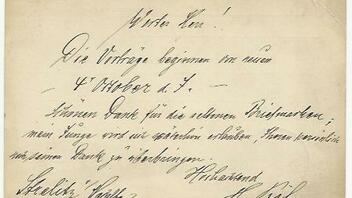 Werter Herr!
Die Vorträge beginnen am neuen
4ᵗ Oktober d. J. –
Schönen Dank für die seltenen Briefmarken;
mein Junge wird sich erlauben, Ihnen persönlich
seinen Dank zu überbringen.
Hochachtend
Strelitz
H.